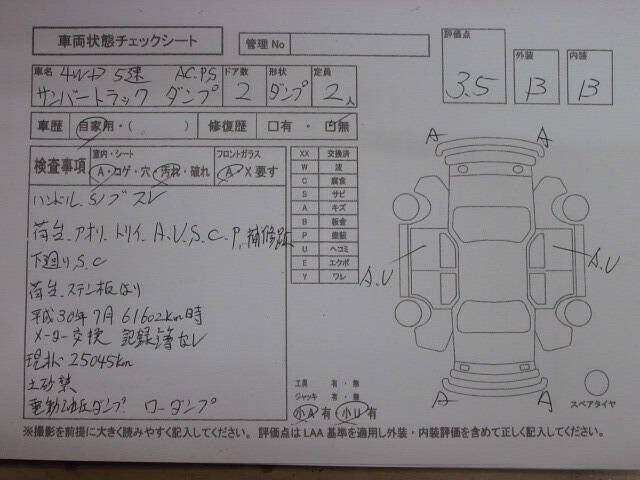 車両状態チェックシート
管理No
評価点
3.5
外装
B
内装
B
車名 4WD 5速 AC.P.S
サンバートラック ダンプ
ドア数
2
形状
ダンプ
定員
2人
車歴 自家用・( ) 修復歴 □有・□無
検査事項
室内・シート
A・コゲ・穴・汚れ・破れ
フロントガラス
A X要す
ハンドル、Sノブ スレ
荷台、アオリ、トリイ、A.U.S.C.P.補修跡
下廻り、S.C
荷台、ステン板はり
平成30年7月61602km時
メーター交換 記録簿なし
現状 25045km
土砂禁
電動油圧ダンプ ローダンプ
XX 交換済
W 波
C 腐食
S サビ
A キズ
B 板金
P 塗装
U ヘコミ
E エクボ
Y ワレ
工具 有・無
ジャッキ 有・無
小A有 小U有
A
A
A.U
A.U
A
A
スペアタイヤ
※撮影を前提に大きく読みやすく記入してください。 評価点は LAA 基準を適用し外装・内装評価を含めて正しく記入してください。